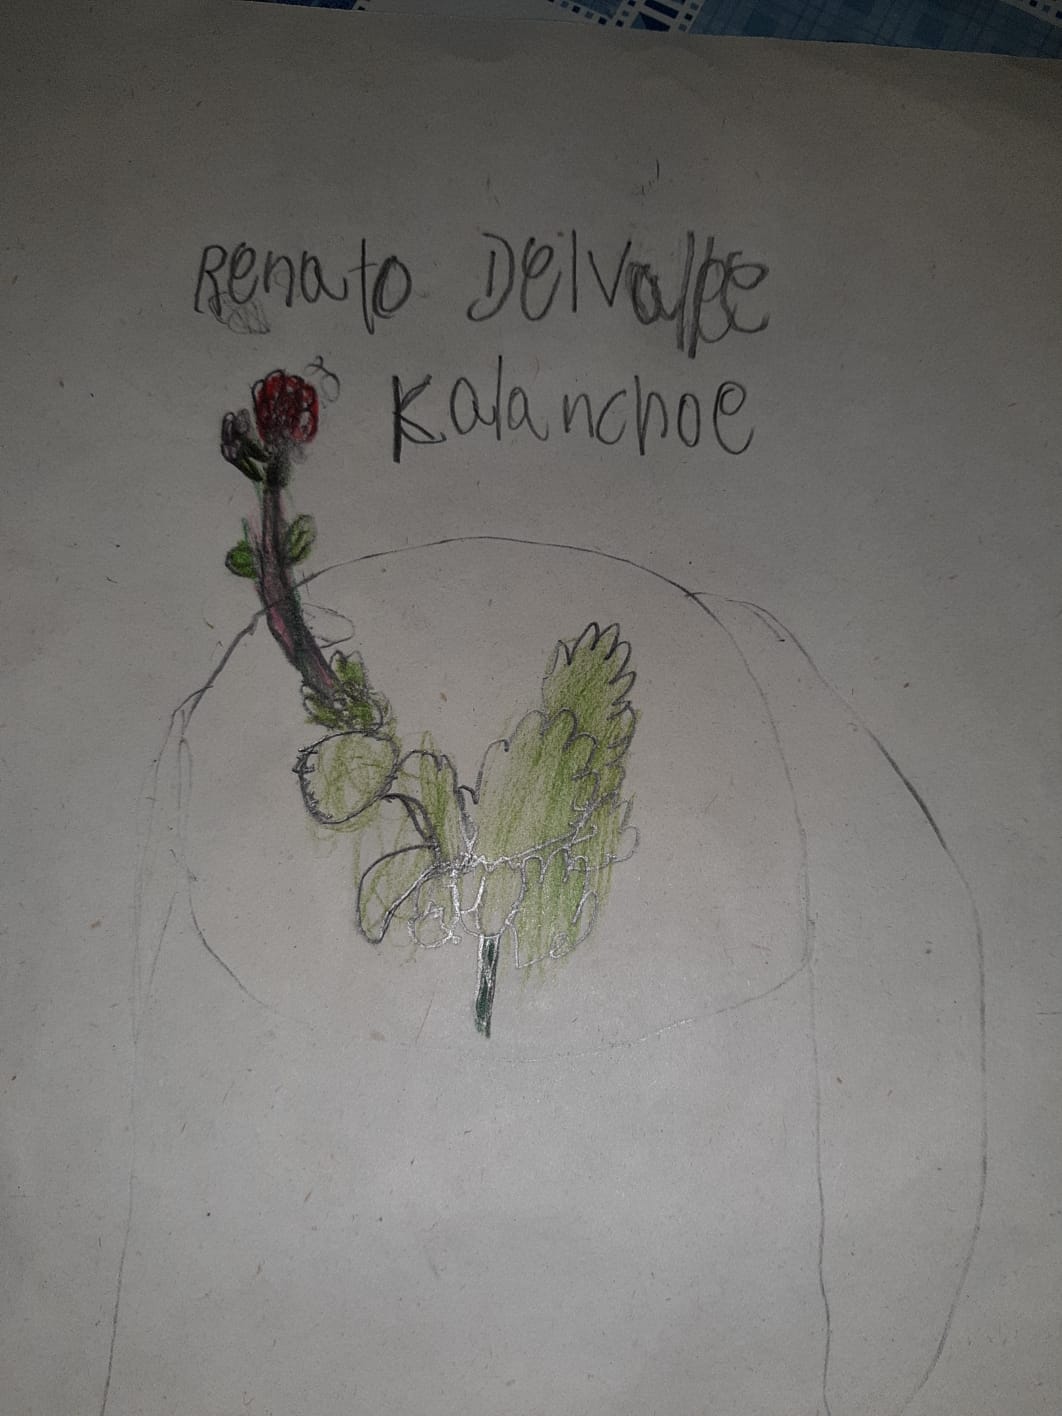 Renato Delvalle
Kalanchoe